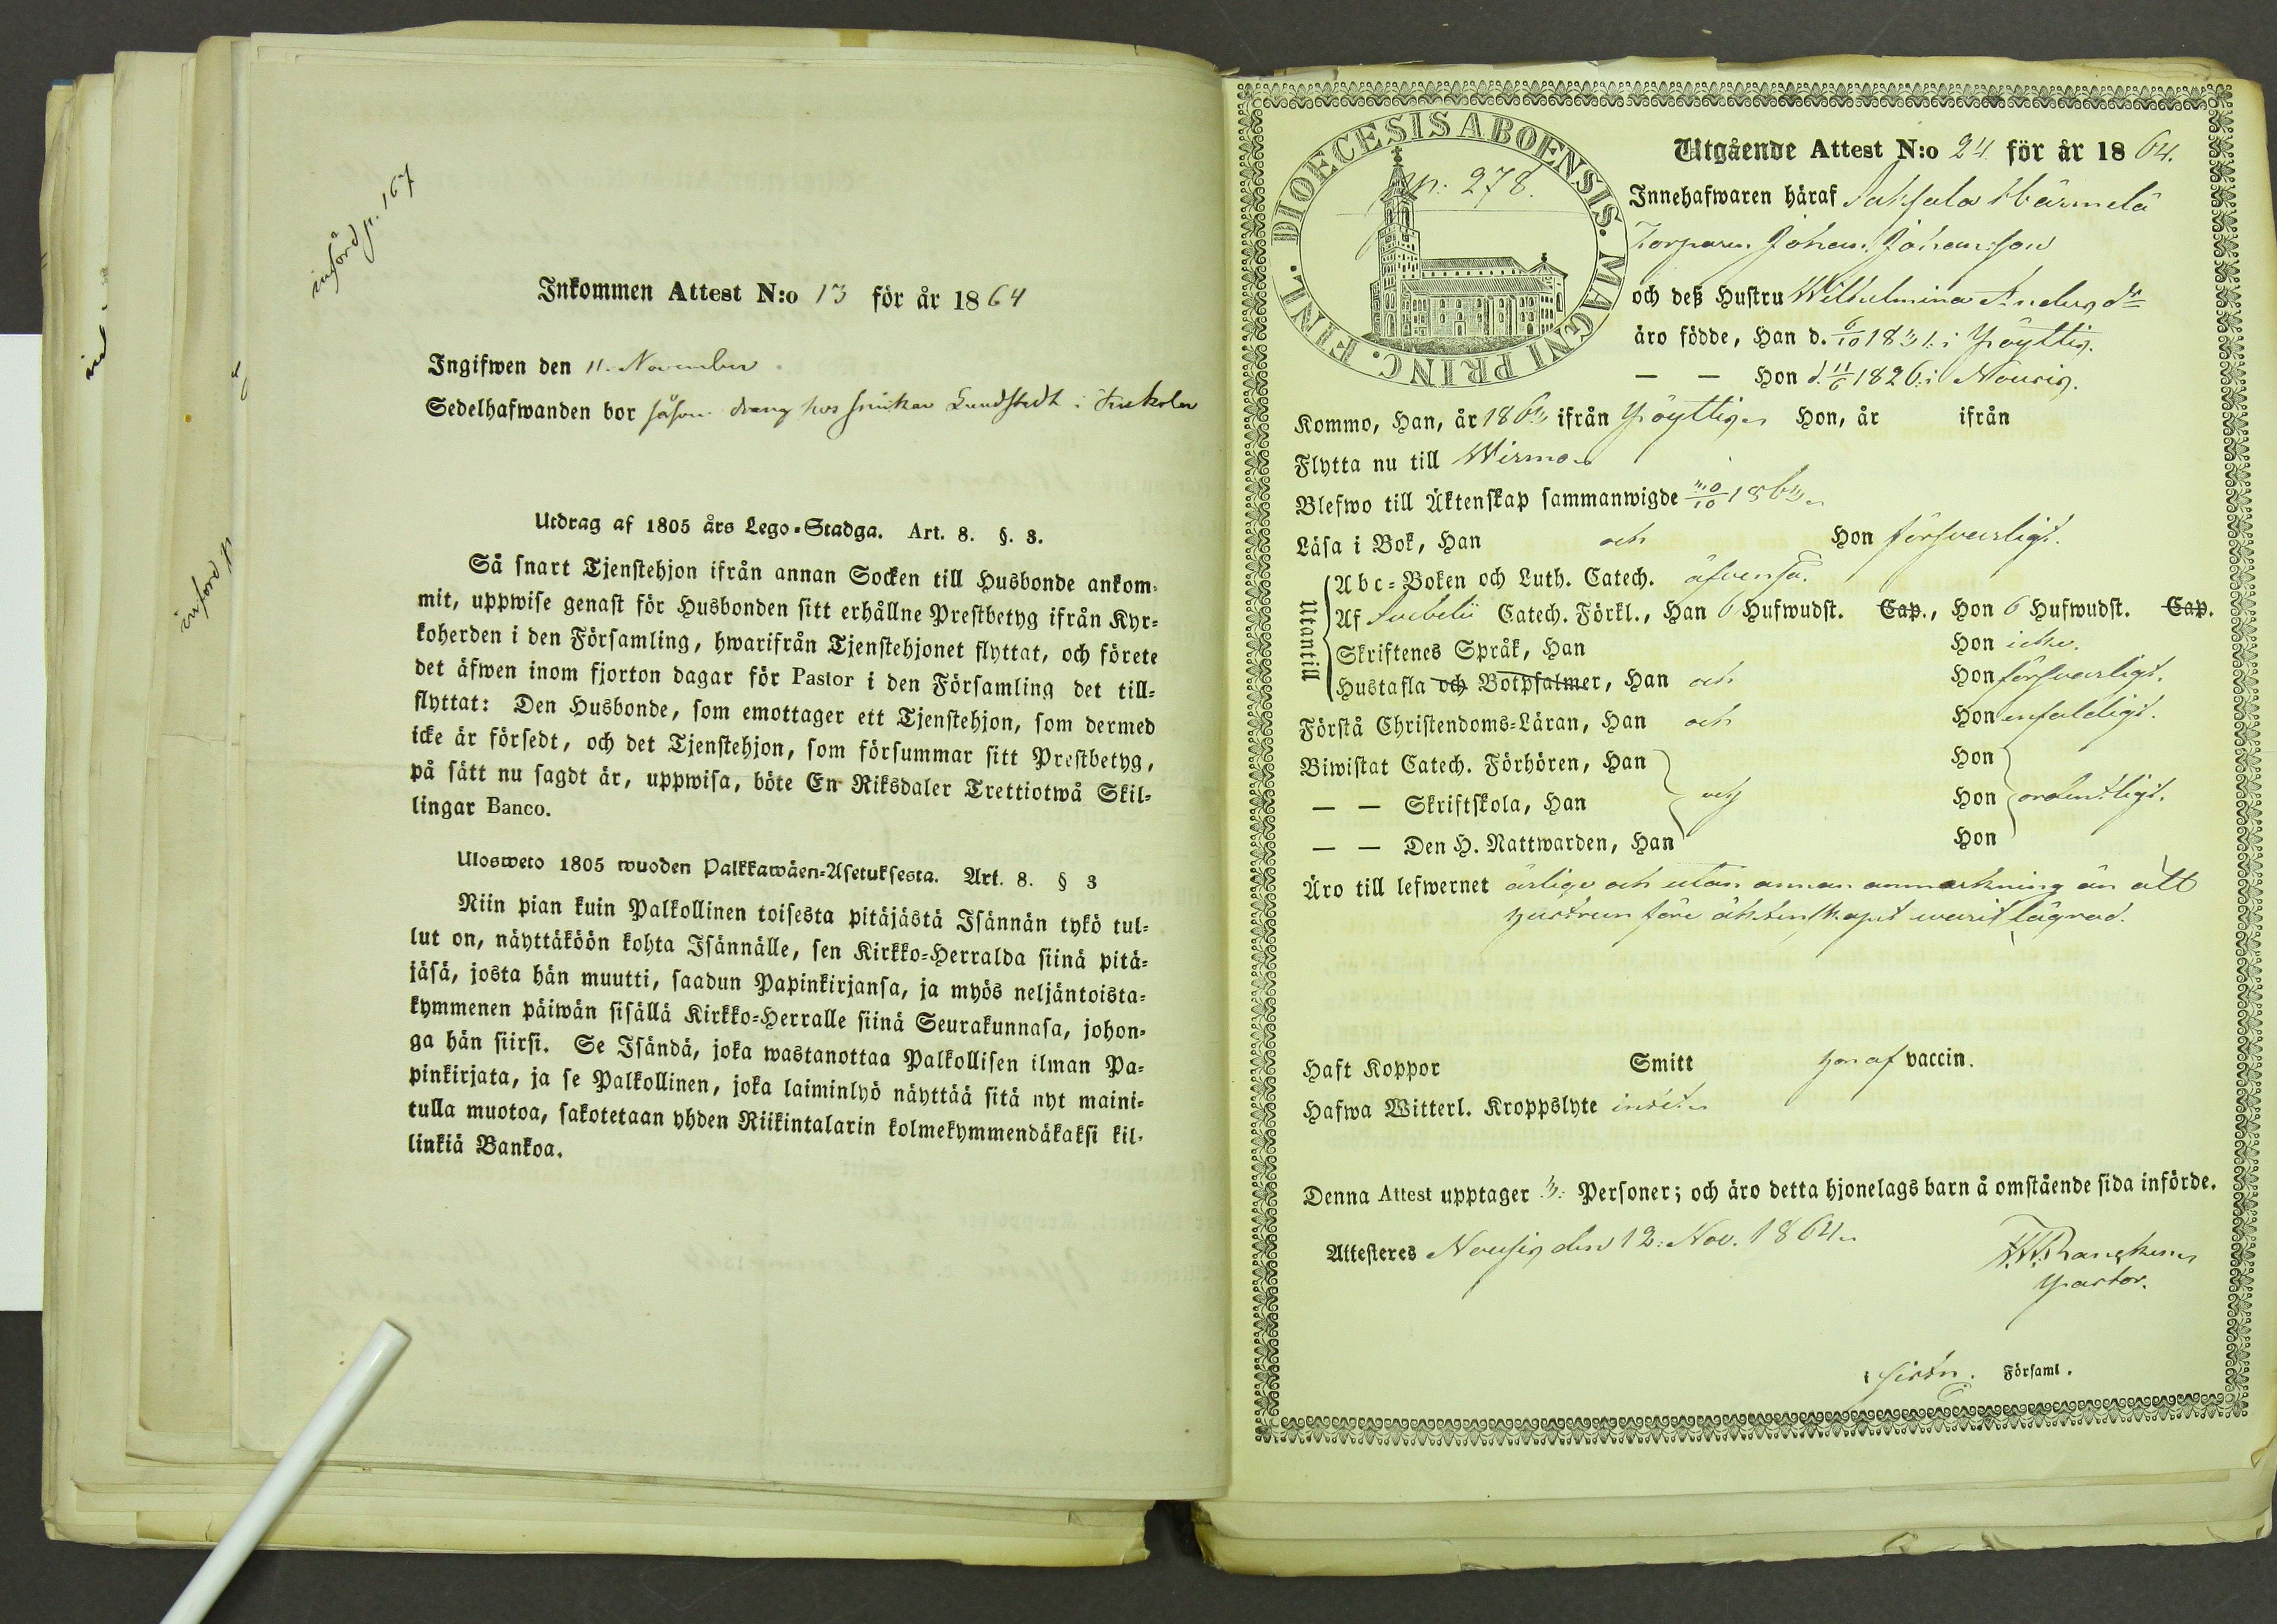 införd p. 167
Inkommen Attest N:o 13 för år 1864
Ingifwen den 11. November
Sedelhafwanden bor såsom dräng hos Lundstedt i
Utdrag af 1805 års Lego-Stadga. Art. 8. §. 3.
Så snart Tjenstehjon ifrån annan Socken till Husbonde ankom-
mit, uppwise genast för Husbonden sitt erhållne Prestbetyg ifrån Kyr-
koherden i den Församling, hwarifrån Tjenstehjonet flyttat, och förete
det äfwen inom fjorton dagar för Pastor i den Församling det till-
flyttat: Den Husbonde, som emottager ett Tjenstehjon, som dermed
icke är försedt, och det Tjenstehjon, som försummar sitt Prestbetyg,
på sätt nu sagdt är, uppwisa, böte En Riksdaler Trettiotwå Skil-
lingar Banco.
Ulosweto 1805 wuoden Palkkawäen-Asetuksesta. Art. 8. § 3
Niin pian kuin Palkollinen toisesta pitäjästä Isännän tykö tul-
lut on, näyttäköön kohta Isännälle, sen Kirkko-Herralda siinä pitä-
jäsä, josta hän muutti, saadun Papinkirjansa, ja myös neljäntoista-
kymmenen päiwän sisällä Kirkko-Herralle siinä Seurakunnasa, johon-
ga hän siirsi. Se Isändä, joka wastanottaa Palkollisen ilman Pa-
pinkirjata, ja se Palkollinen, joka laiminlyö näyttää sitä nyt maini-
tulla muotoa, sakotetaan yhden Riikintalarin kolmekymmendäkaksi kil-
linkiä Bankoa.
införd p
DIOECESIS ABOENSIS. MAGNI PRINC. FINL.
p: 278.
Utgående Attest N:o 24. för år 1864.
Innehafwaren häraf Härmelä
Torparen Johan Johansson
och deß Hustru Wilhelmina Andersdr
äro födde, Han d. 6/10 1831. i Pöyttis.
— — Hon d. 11/6 1826. i Nousis.
Kommo, Han, år 1863 ifrån Pöyttis Hon, år ifrån
Flytta nu till Wirmo
Blefwo till Äktenskap sammanwigde 30/10 1863.
Läsa i Bok, Han och Hon försvarligt.
Utantill
Abc-Boken och Luth. Catech. äfvenså.
Af Svebelii Catech. Förkl., Han 6 Hufwudst. Cap., Hon 6 Hufwudst. Cap.
Skriftenes Språk, Han Hon icke.
Hustafla och Botpsalmer, Han och Hon försvarligt.
Förstå Christendoms-Läran, Han och Hon enfaldigt.
Biwistat Catech. Förhören, Han Hon
— — Skriftskola, Han och Hon ordentligt.
— — Den H. Nattwarden, Han Hon
Äro till lefwernet ärlige och utan annan anmärkning än att
hustrun före äktenskapet warit lägrad.
Haft Koppor Smitt hon af vaccin.
Hafwa Witterl. Kroppslyte intet
Denna Attest upptager 3: Personer; och äro detta hjonelags barn å omstående sida införde.
Attesteres Nousis den 12: Nov. 1864.
Pastor.
Församl.